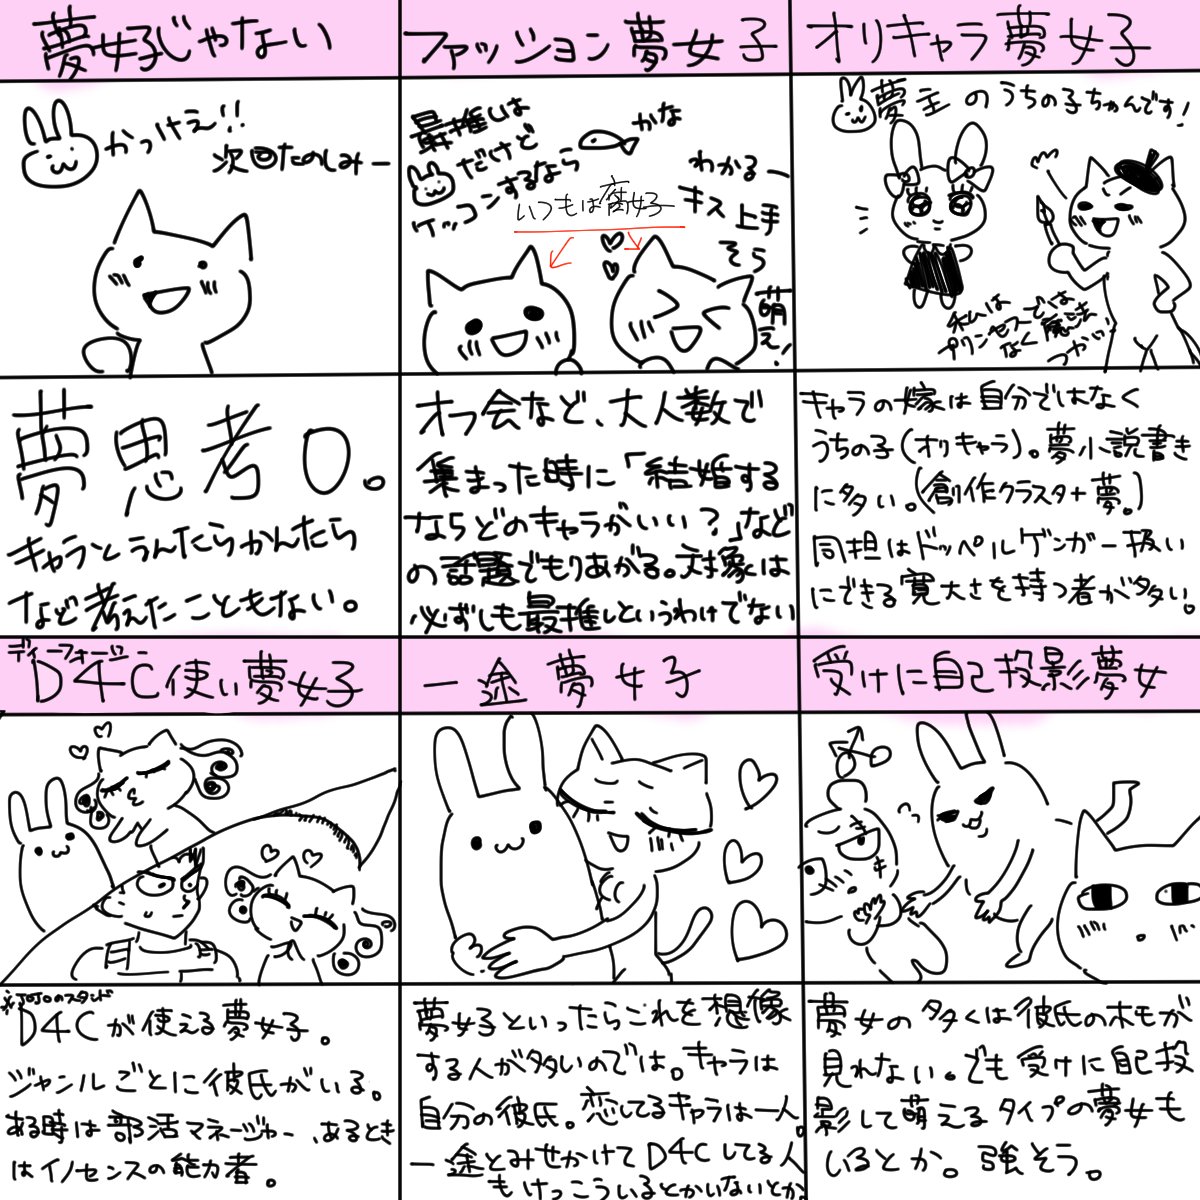 夢女子じゃない
かっけえ!!
次回たのしみー
夢思考0。
キャラとうんたらかんたら
など考えたこともない。
ファッション夢女子
最推しは
だけど
ケッコンするなら
かな
いつもは腐女子
わかるー
キス上手
そう
萌え!
オフ会など、大人数で
集まった時に「結婚する
ならどのキャラがいい?」など
の話題でもりあがる。対象は
必ずしも最推しというわけでない
オリキャラ夢女子
夢主のうちの子ちゃんです!
私は
プリンセスでは
なく魔法
つかい!
キャラの嫁は自分ではなく
うちの子(オリキャラ)。夢小説書き
に多い。(創作クラスタ+夢。)
同担はドッペルゲンガー扱い
にできる寛大さを持つ者が多い。
ディーフォーシー
D4C使い夢女子
※JOJOのスタンド
D4Cが使える夢女子。
ジャンルごとに彼氏がいる。
ある時は部活マネージャー、あるとき
はイノセンスの能力者。
一途夢女子
夢女子といったらこれを想像
する人が多いのでは。キャラは
自分の彼氏。恋してるキャラは一人。
一途とみせかけてD4Cしてる人
もけっこういるとかいないとか。
受けに自己投影夢女
夢女の多くは彼氏のホモが
見れない。でも受けに自己投
影して萌えるタイプの夢女も
いるとか。強そう。